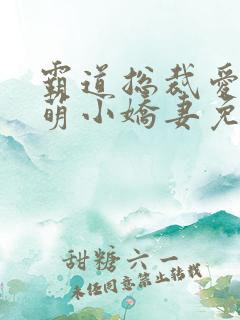 霸道总裁爱
萌小嬌妻免
甜糖六一
未经同意禁止转载